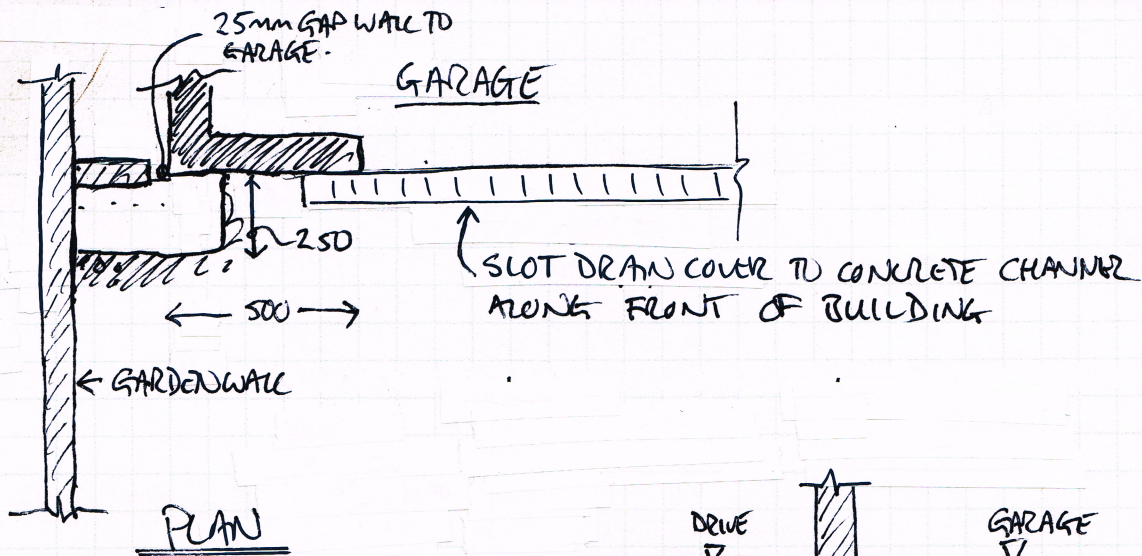 25mm GAP WALL TO
GARAGE.
GARAGE
250
SLOT DRAIN COVER TO CONCRETE CHANNEL
ALONG FRONT OF BUILDING
500
GARDEN WALL
PLAN
DRIVE
GARAGE